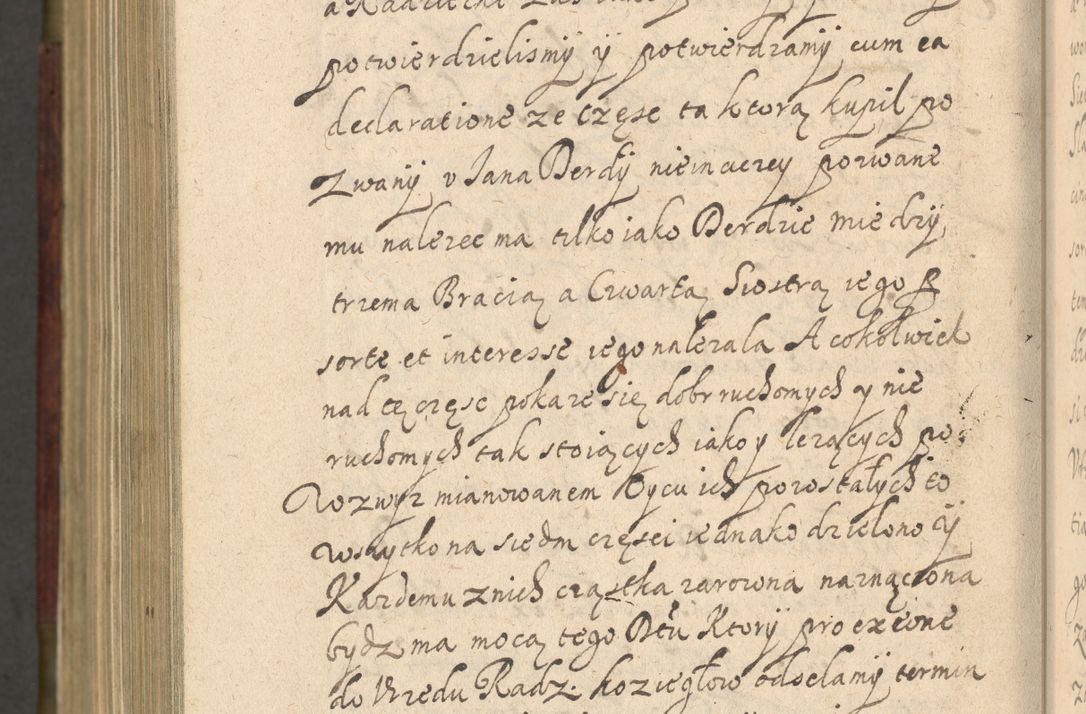 potwierdzielismÿ ÿ potwierdzamÿ cum ea
declaratione ze częsc ta ktorą kupil po
zwanÿ v Jana Derdÿ nie inaczey pozwane
mu nalezec ma tilko iako Derdzie miedzÿ
trzema Bracią a Czwartą Siostrą iego
sorte et interesse iego nalezala A cokolwiek
nad tę częsc pokaze się dobr ruchomych y nie
ruchomych tak stoiących iako y lezących po
wozwyz mianowanem Oycu ich pozostałych to
wszytko na siedm częsci iednako dzielono ÿ
Kazdemu znich cząstka zarowna naznączona
bydz ma mocą tego Dtu Ktorÿ pro exeone
do Vrzedu Radz: koziegłow odselamÿ termin